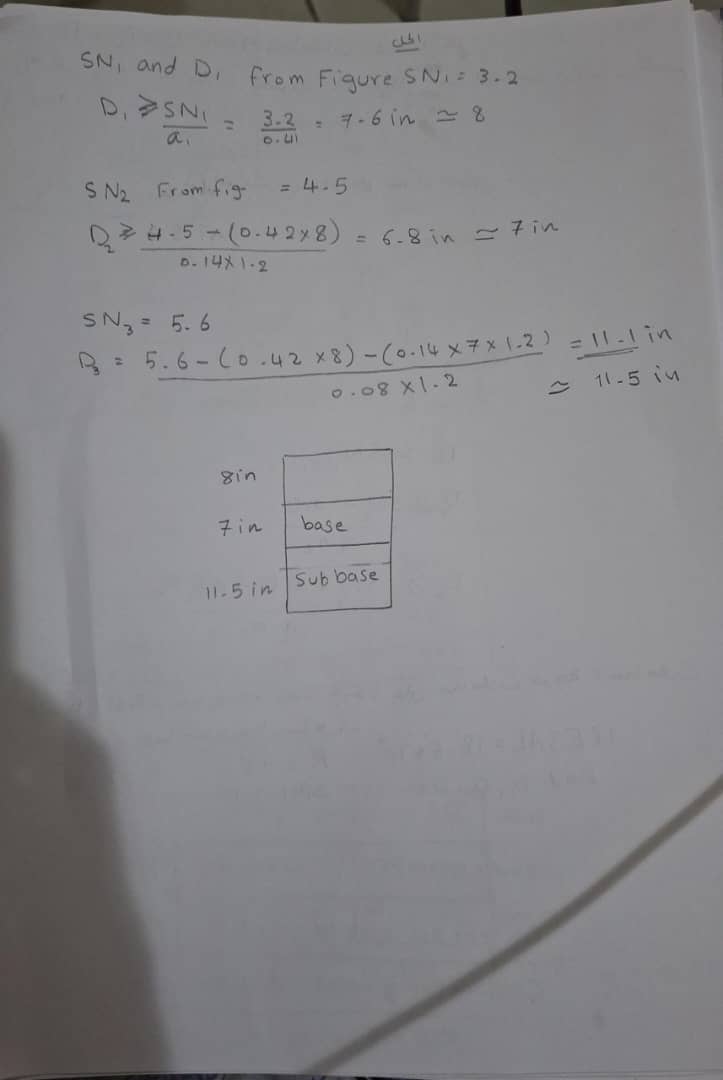 الحل
SN₁ and D₁ from Figure SN₁ = 3.2
D₁ ⩾ SN₁/a₁ = 3.2/0.41 = 7.6 in ≃ 8
SN₂ From fig = 4.5
D₂ ⩾ 4.5 - (0.42×8) / 0.14×1.2 = 6.8 in ≃ 7 in
SN₃ = 5.6
D₃ = 5.6 - (0.42 ×8) - (0.14 × 7 × 1.2) / 0.08 ×1.2 = 11.1 in
≃ 11.5 in
8in
7in base
11.5 in Sub base